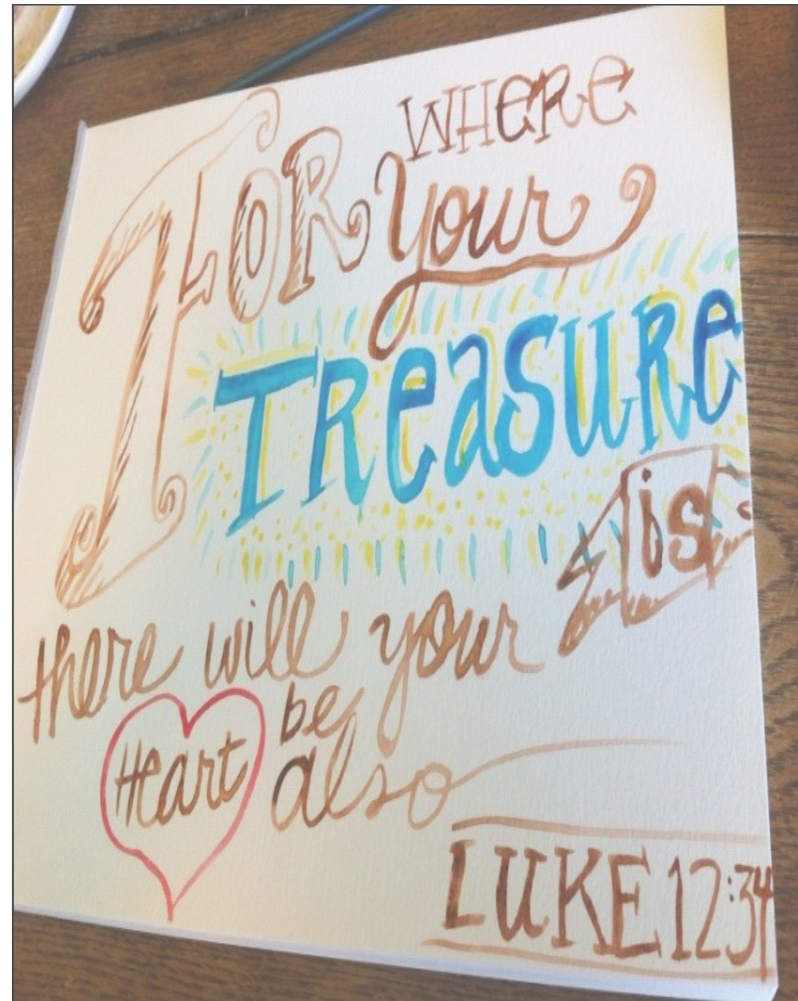 FOR WHERE
your
TReaSuRe
is
there will your
Heart be
also
LUKE 12:34